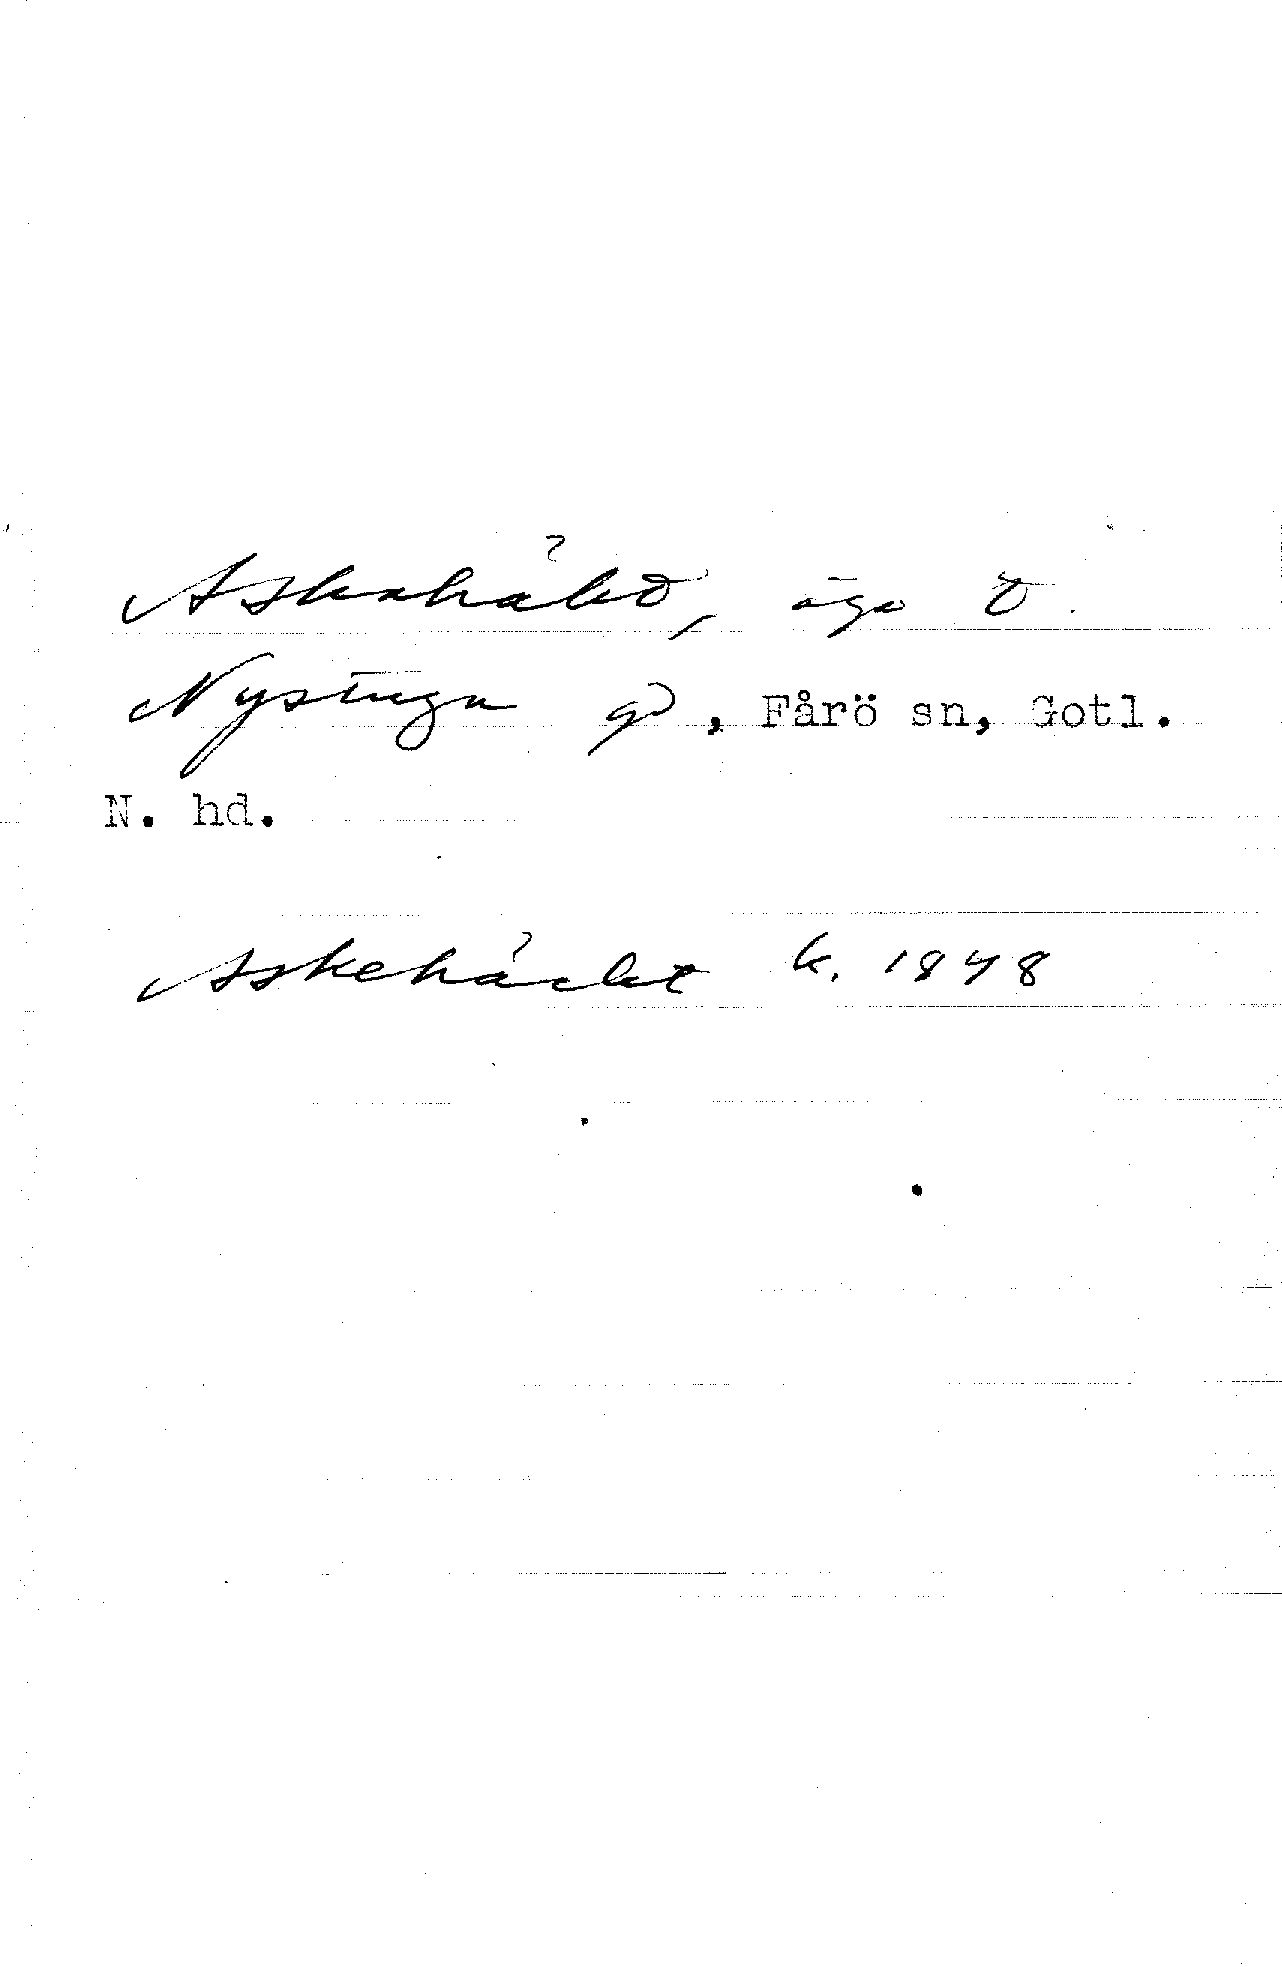 Askahåld, äga t.
Nystuga gd, Fårö sn, Gotl.
N. hd.
Askehåelet k. 1848